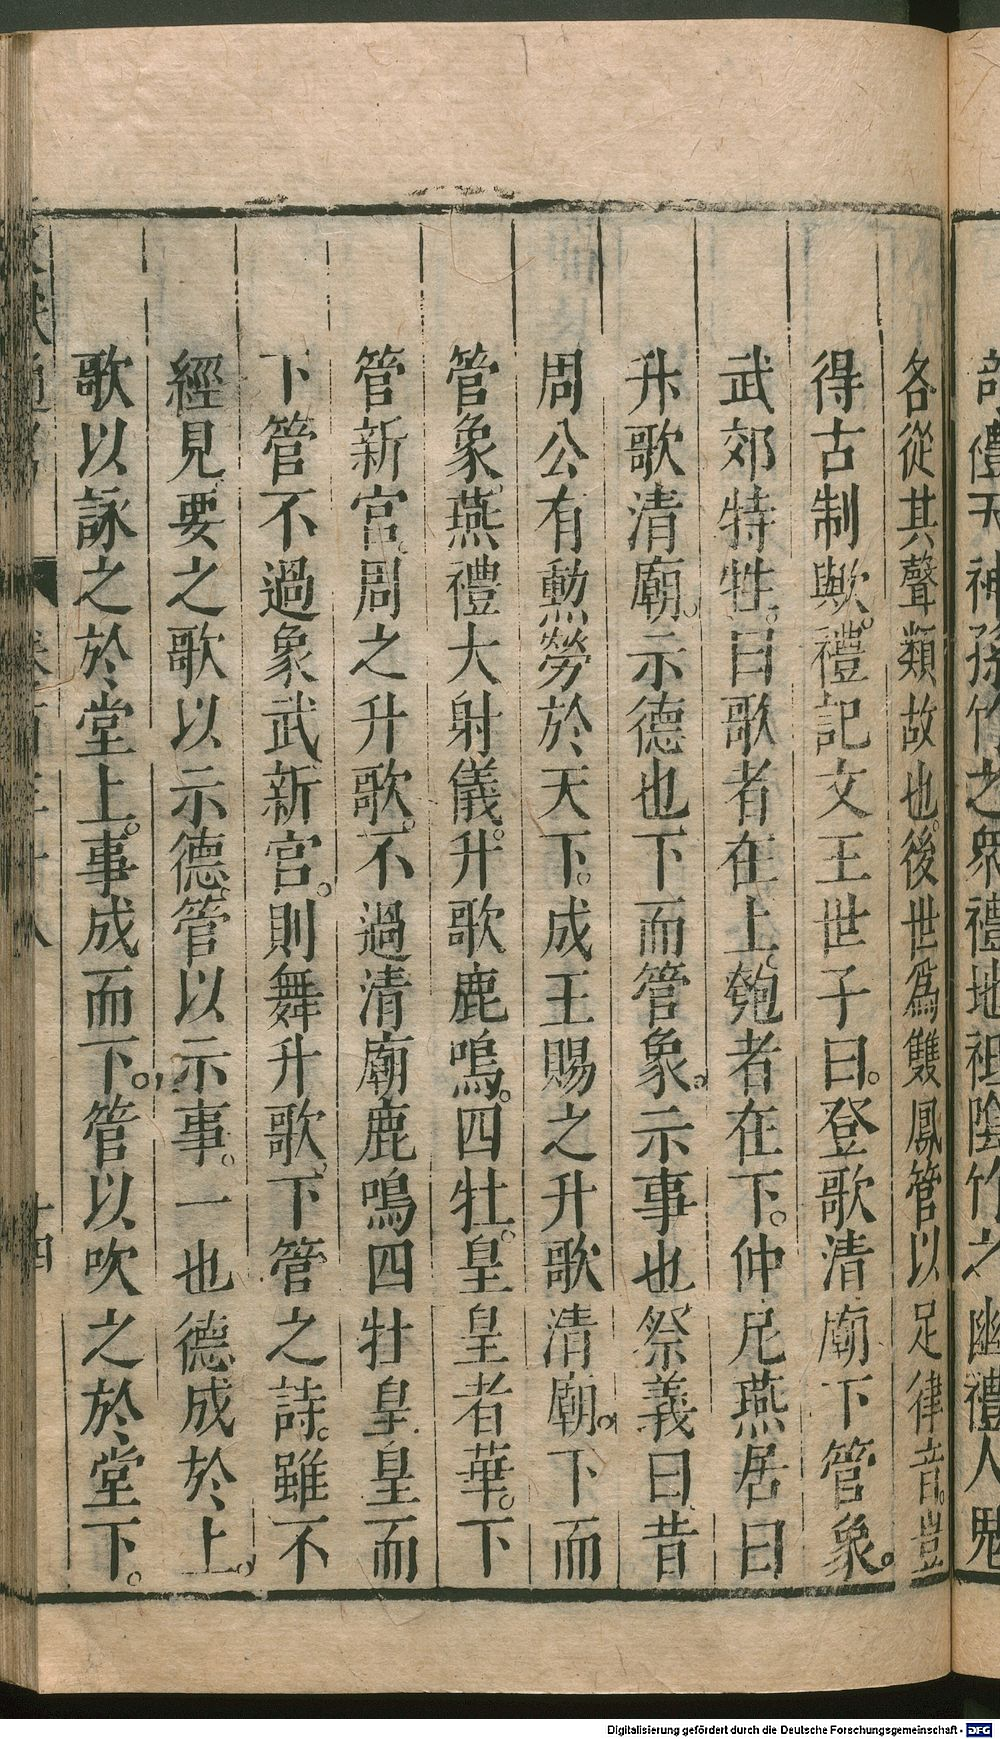 部禮天神孫竹之衆禮地祗陰竹之幽禮人鬼
各從其聲類故也。後世爲雙鳳管以足律音。豈
得古制歟。禮記文王世子曰。登歌清廟下管象。
武郊特牲。曰歌者在上。匏者在下。仲尼燕居曰
升歌清廟。示德也下而管象。示事也祭義曰昔
周公有勲勞於天下。成王賜之升歌清廟。下而
管象燕禮大射儀。升歌鹿鳴。四牡。皇皇者華。下
管新宮。周之升歌。不過清廟鹿鳴四牡皇皇而
下管不過象武新宮。則舞升歌下管之詩。雖不
經見。要之歌以示德。管以示事。一也德成於上。
歌以詠之於堂上。事成而下。管以吹之於堂下。
十四
Digitalisierung gefördert durch die Deutsche Forschungsgemeinschaft - DFG